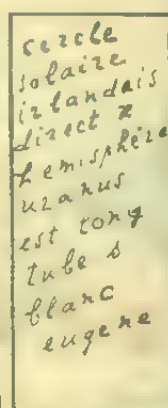 cercle
solaire
irlandais
direct x
hemisphére
uranus
est tony
tube s
blanc
eugene